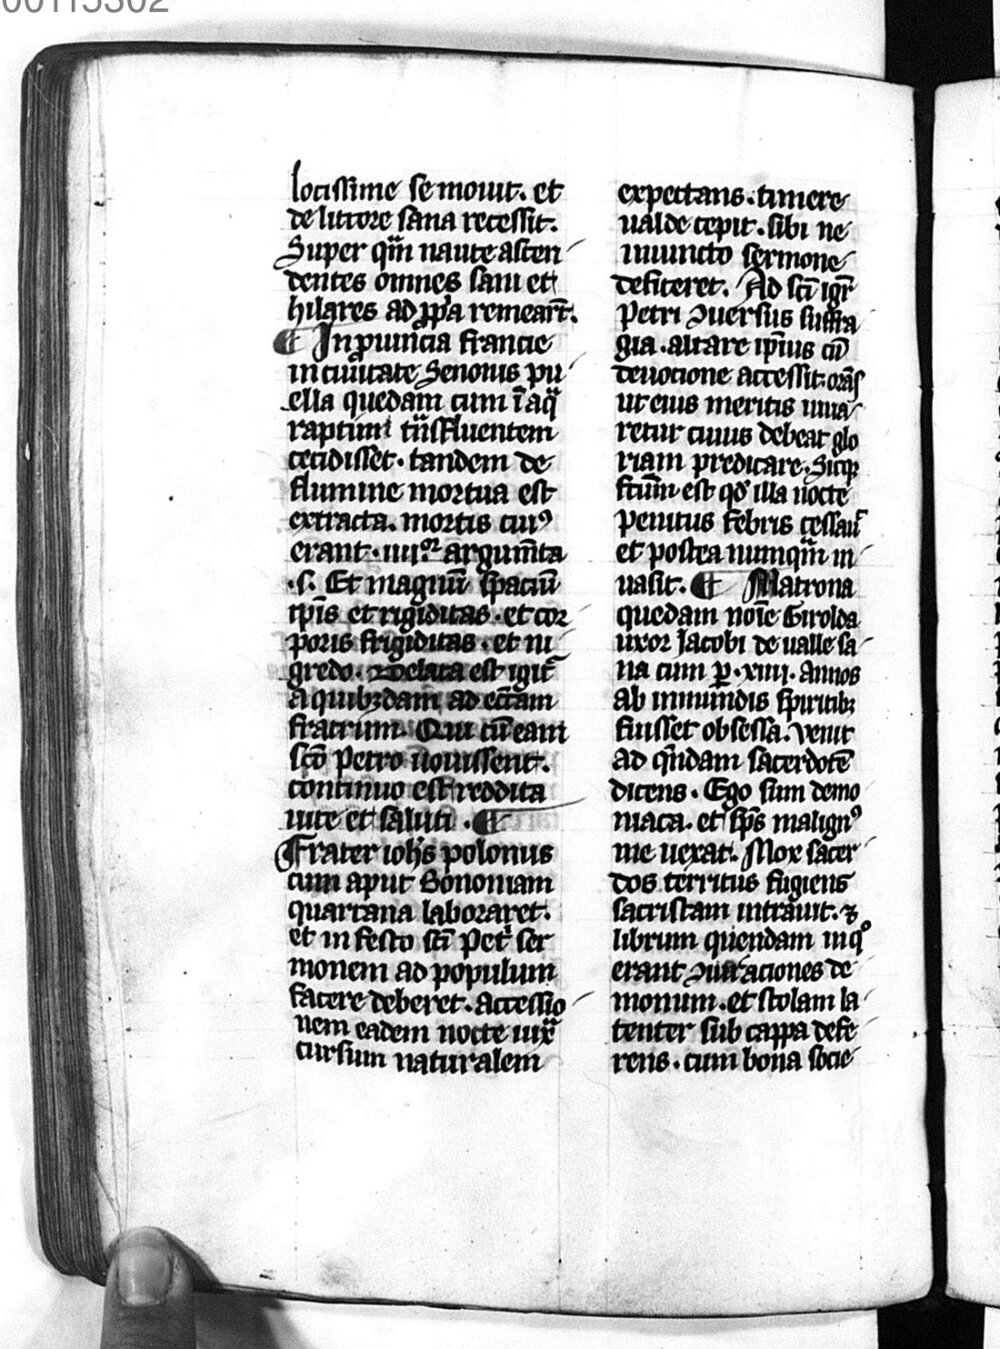 00115302
locissime se mouit. et
de littore sana recessit.
Super qm̄ naute ascen
dentes omnes sani et
hilares ad ꝓp̄a remear̄t.
¶ In ꝓuincia francie
in ciuitate Senonis pu
ella quedam cum ī aq̄
raptim trͣsfluentem
cecidisset. tandem de
flumine mortua est
extracta. mortis cuiꝰ
erant .iiiiᵒʳ argum̄ta
.s. Et magnū spaciū
ip̄is et rigiditas. et cor
poris frigiditas. et ni
gredo. Delata est igit᷑
a quibꝫdam ad ecc̄am
fratrum. Qui cū eam
scō Petro uouissent.
continuo est reddita
uite et saluti. ¶
Frater ioh̄s polonus
cum aput Bononiam
quartana laboraret.
et in festo sc̄i Pet̄ ser
monem ad populum
facere deberet. accessio
nem eadem nocte iuxͣ
cursum naturalem
expectans. timere
ualde cepit. sibi ne
iniuncto sermone
deficeret. Ad sc̄i igr̄
Petri ꝯuersus suffra
gia. altare ip̄ius cū
deuocione accessit. orās
ut eius meritis iuua
retur cuius debeat glo
riam predicare. Sicqꝫ
fc̄um est qď illa nocte
penitus febris cessaū
et postea numqm̄ in
uasit. ¶ Matrona
quedam noīe Girolda
uxor Jacobi de ualle sa
na cum ꝑ .xiiii. annos
ab inmūdis spiritibꝫ
fuisset obsessa. venit
ad qͣndam sacerdotē
dicens. Ego sum demo
niaca. et sp̄s malignꝰ
me uexat. Mox sacer
dos territus fugiens
sacristam intrauit. ⁊
librum quendam in qͦ
erant ꝯiurationes de
monum. et stolam la
tenter sub cappa defe
rens. cum bona socie